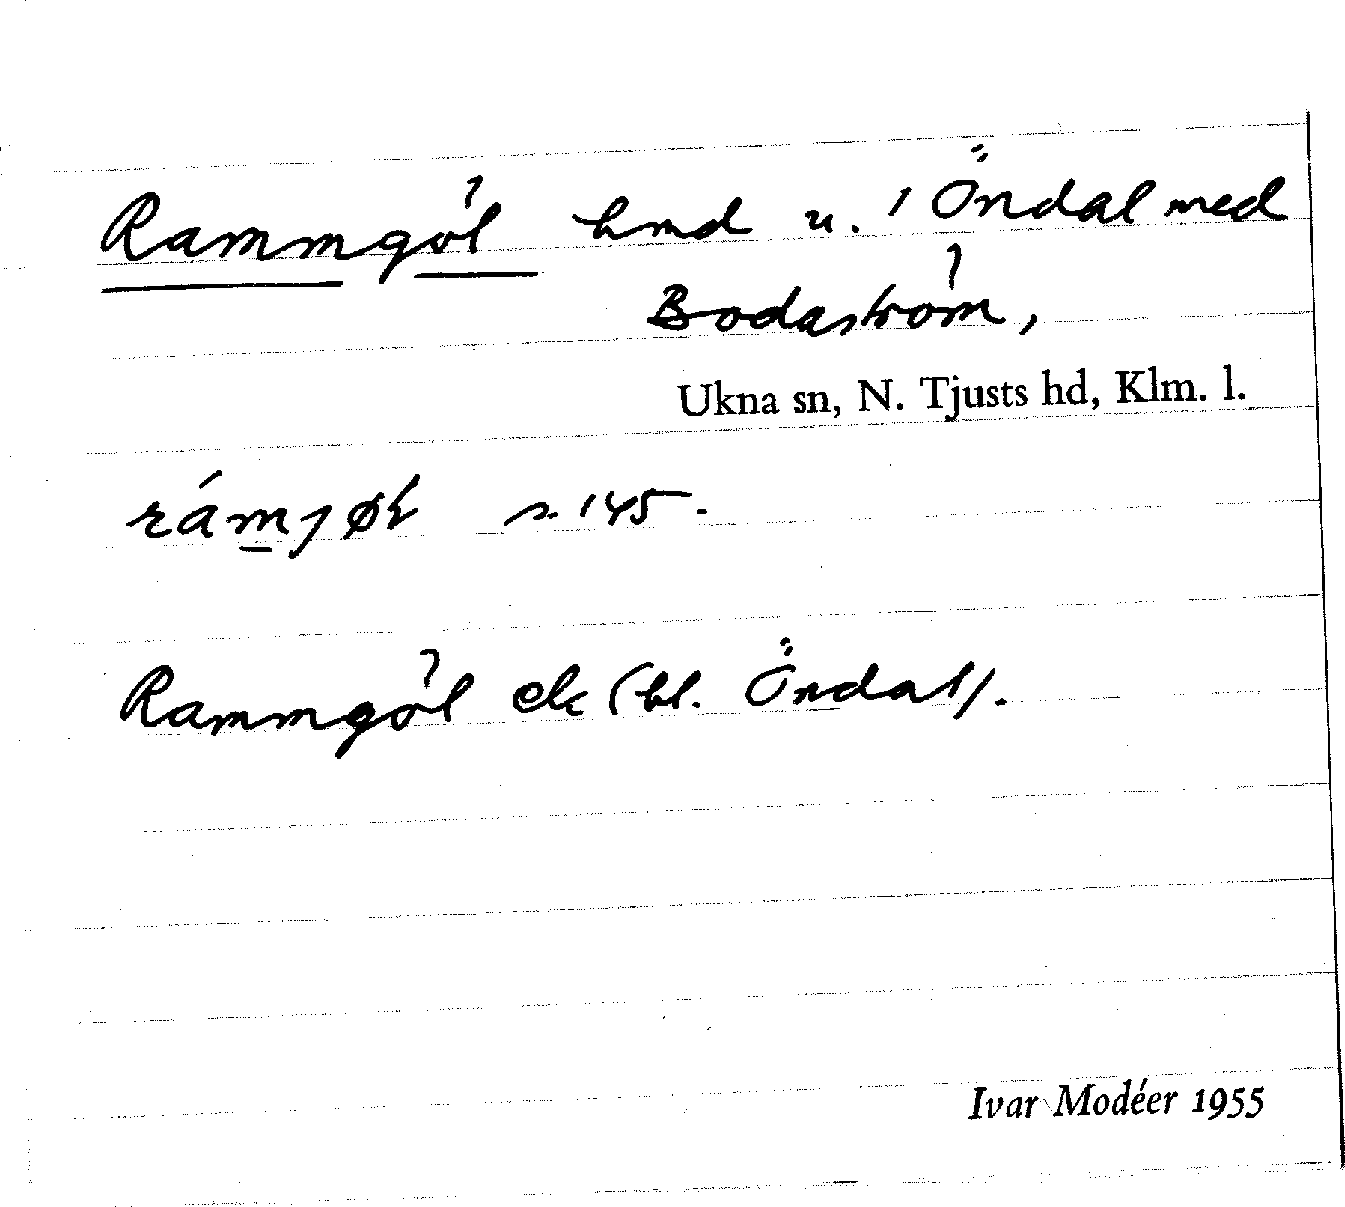 Rammgöl hmd u. 1 Öndal med
Bodaström,
Ukna sn, N. Tjusts hd, Klm. l.
rámȷøł s. 145.
Rammgöl ek (bl. Öndal).
Ivar Modéer 1955